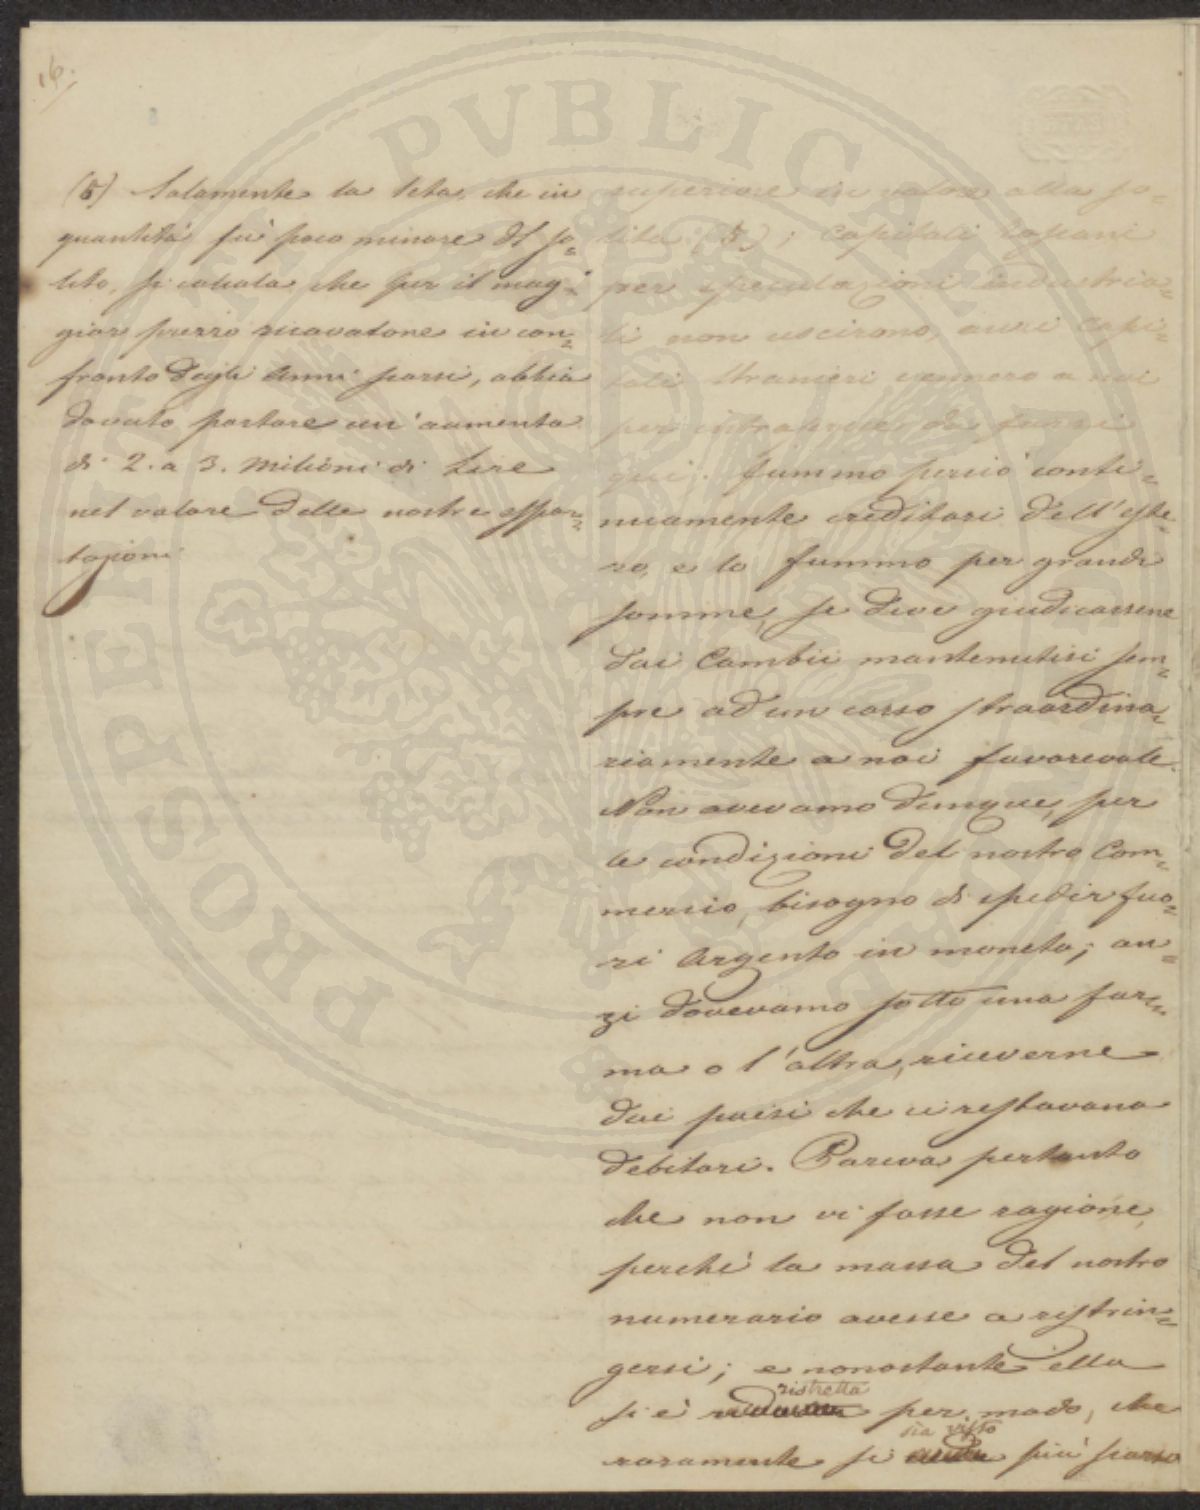 16.
(5) Solamente la Seta, che in
quantità fu poco minore del so=
lito, si calcola che per il mag=
gior prezzo ricavatone in con=
fronto degli Anni scorsi, abbia
dovuto portare un'aumento
di 2. a 3. Milioni di Lire
nel valore delle nostre espor=
tazioni
superiore in valore alla so=
lita (5); Capitali toscani
per speculazioni industria=
li non uscirono, anzi Capi=
tali stranieri vennero a noi
per intraprese da farsi
qui. Fummo perciò conti=
nuamente creditori dell'este=
ro, e lo fummo per grandi
somme, se deve giudicarsene
dai Cambii mantenutisi sem=
pre ad un corso straordina=
riamente a noi favorevole.
Non avevamo dunque, per
le condizioni del nostro Com=
mercio, bisogno di spedir fuo=
ri Argento in moneta; an=
zi dovevamo sotto una for=
ma o l'altra, riceverne
dai paesi che ci restavano
debitori. Pareva pertanto
che non vi fosse ragione,
perchè la massa del nostro
numerario avesse a restrin=
gersi; e nonostante ella
si è ristretta per modo, che
raramente si sia visto più scarso
PROSPERITE PVBLICAE